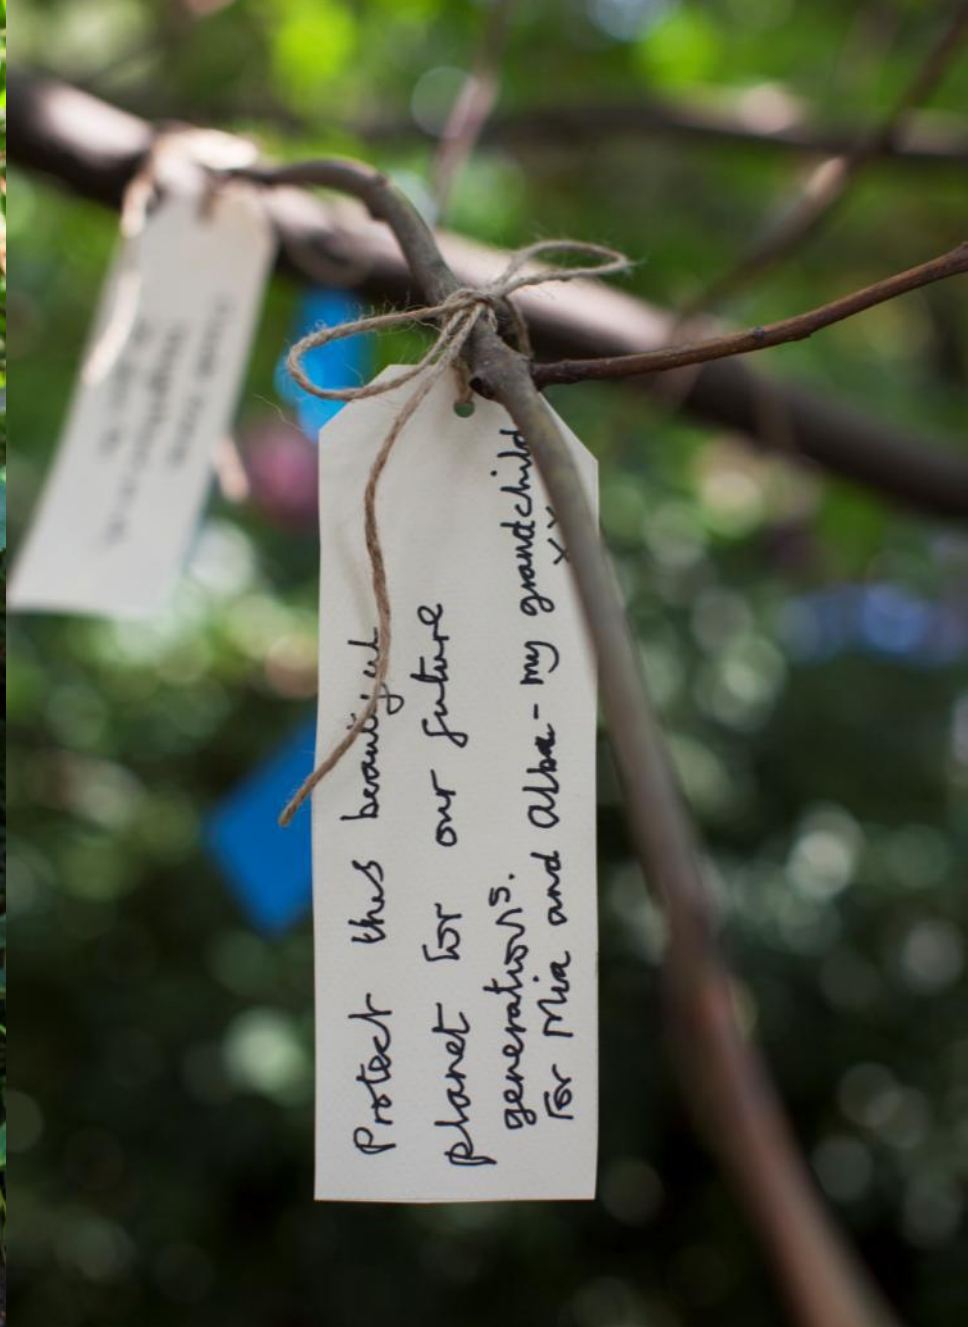 Protect this beautiful
planet for our future
generations.
For Mia and Alba - my grandchild
xx